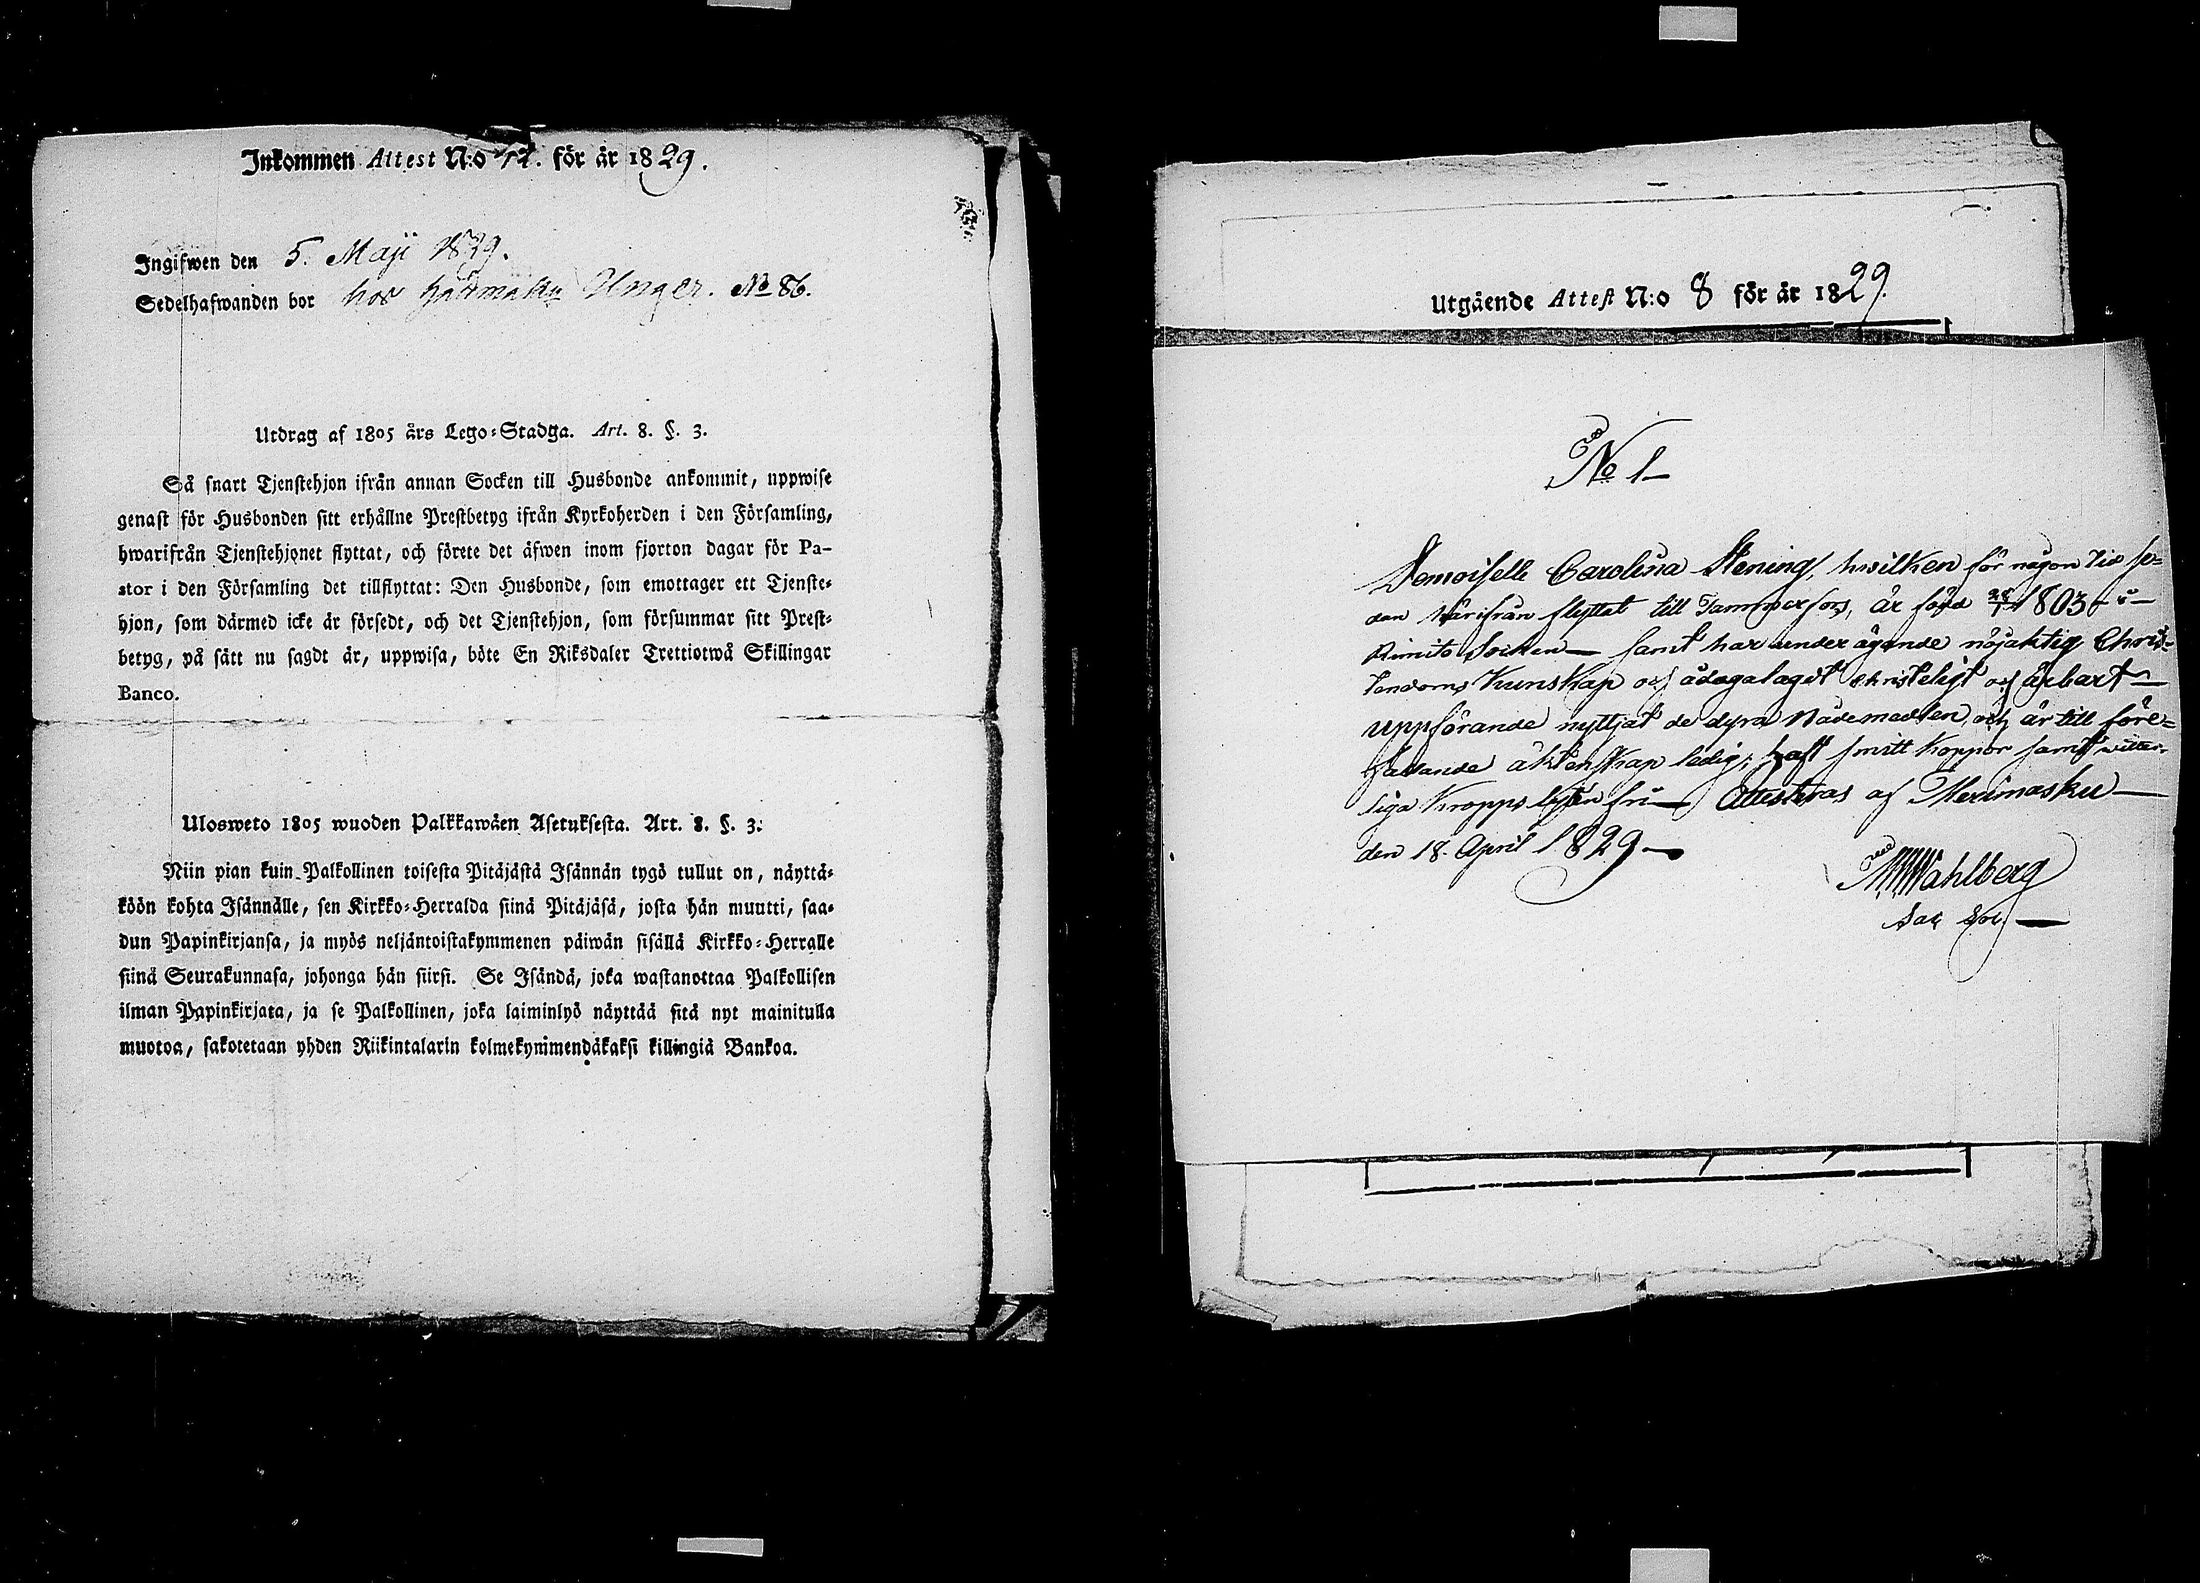 Inkommen Attest N:o 12. för år 1829.
Ingifwen den 5. Maji 1829.
Sedelhafwanden bor hos Unger. No 86.
Utdrag af 1805 års Lego-Stadga. Art. 8. §. 3.
Så snart Tjenstehjon ifrån annan Socken till Husbonde ankommit, uppwise
genast för Husbonden sitt erhållne Prestbetyg ifrån Kyrkoherden i den Församling,
hwarifrån Tjenstehjonet flyttat, och förete det äfwen inom fjorton dagar för Pa-
stor i den Församling det tillflyttat: Den Husbonde, som emottager ett Tjenste-
hjon, som därmed icke är försedt, och det Tjenstehjon, som försummar sitt Prest-
betyg, på sätt nu sagdt är, uppwisa, böte En Riksdaler Trettiotwå Skillingar
Banco.
Ulosweto 1805 wuoden Palkkawäen Asetuksesta. Art. 8. §. 3.
Niin pian kuin Palkollinen toisesta Pitäjästä Isännän tygö tullut on, näyttä-
köön kohta Isännälle, sen Kirkko-Herralda siinä Pitäjäsä, josta hän muutti, saa-
dun Papinkirjansa, ja myös neljäntoistakymmenen päiwän sisällä Kirkko-Herralle
siinä Seurakunnasa, johonga hän siirsi. Se Isändä, joka wastanottaa Palkollisen
ilman Papinkirjata, ja se Palkollinen, joka laiminlyö näyttää sitä nyt mainitulla
muotoa, sakotetaan yhden Riikintalarin kolmekymmendäkaksi killingiä Bankoa.
Utgående Attest N:o 8 för år 1829.
No 1
Demoiselle Carolina Stening, hwilken för någon tid se-
dan härifrån flyttat till Tammerfors, är född 1803 i
Rimito Socken samt har under ägande nöjaktig Chris-
tendoms Kunskap och ådagalagdt christeligt och ärbart
uppförande nyttjat de dyra Nådemedlen, och är till före-
fallande äktenskap ledig, haft smitt koppor samt witter-
liga Kropps lyten fri Attesteras af Merimasku
den 18. April 1829
Wahlberg
Sac